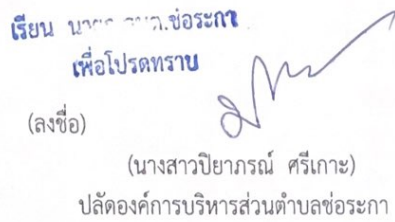 เรียน นายก อบต.ช่อระกา
เพื่อโปรดทราบ
(ลงชื่อ)
(นางสาวปิยาภรณ์ ศรีเกาะ)
ปลัดองค์การบริหารส่วนตำบลช่อระกา